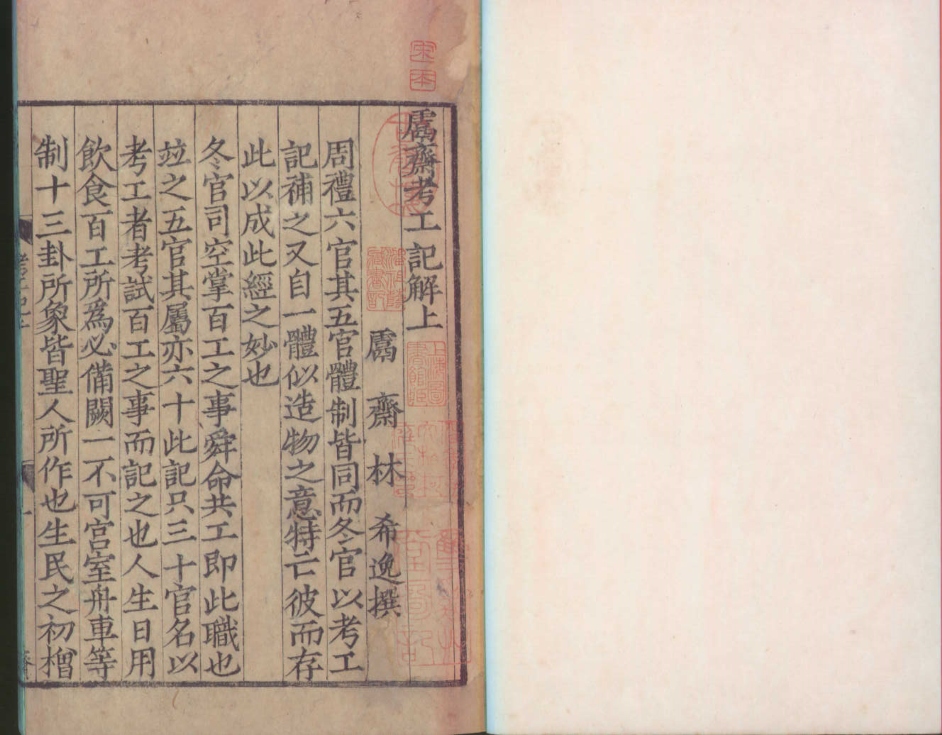 鬳齋考工記解上
鬳齋林希逸撰
周禮六官其五官體制皆同而冬官以考工
記補之又自一體似造物之意特亡彼而存
此以成此經之妙也
冬官司空掌百工之事舜命共工即此職也
竝之五官其屬亦六十此記只三十官名以
考工者考試百工之事而記之也人生日用
飲食百工所爲必備闕一不可宫室舟車等
制十三卦所象皆聖人所作也生民之初橧
宋本